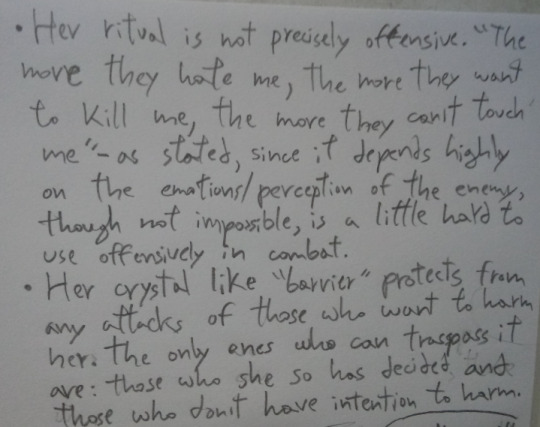 • Her ritual is not precisely offensive. "The
more they hate me, the more they want
to kill me, the more they can't touch
me"- as stated, since it depends highly
on the emotions/perception of the enemy,
though not impossible, is a little hard to
use offensively in combat.
• Her crystal like "barrier" protects from
any attacks of those who want to harm
her. The only ones who can traspass it
are: those who she so has decided and
those who don't have intention to harm.